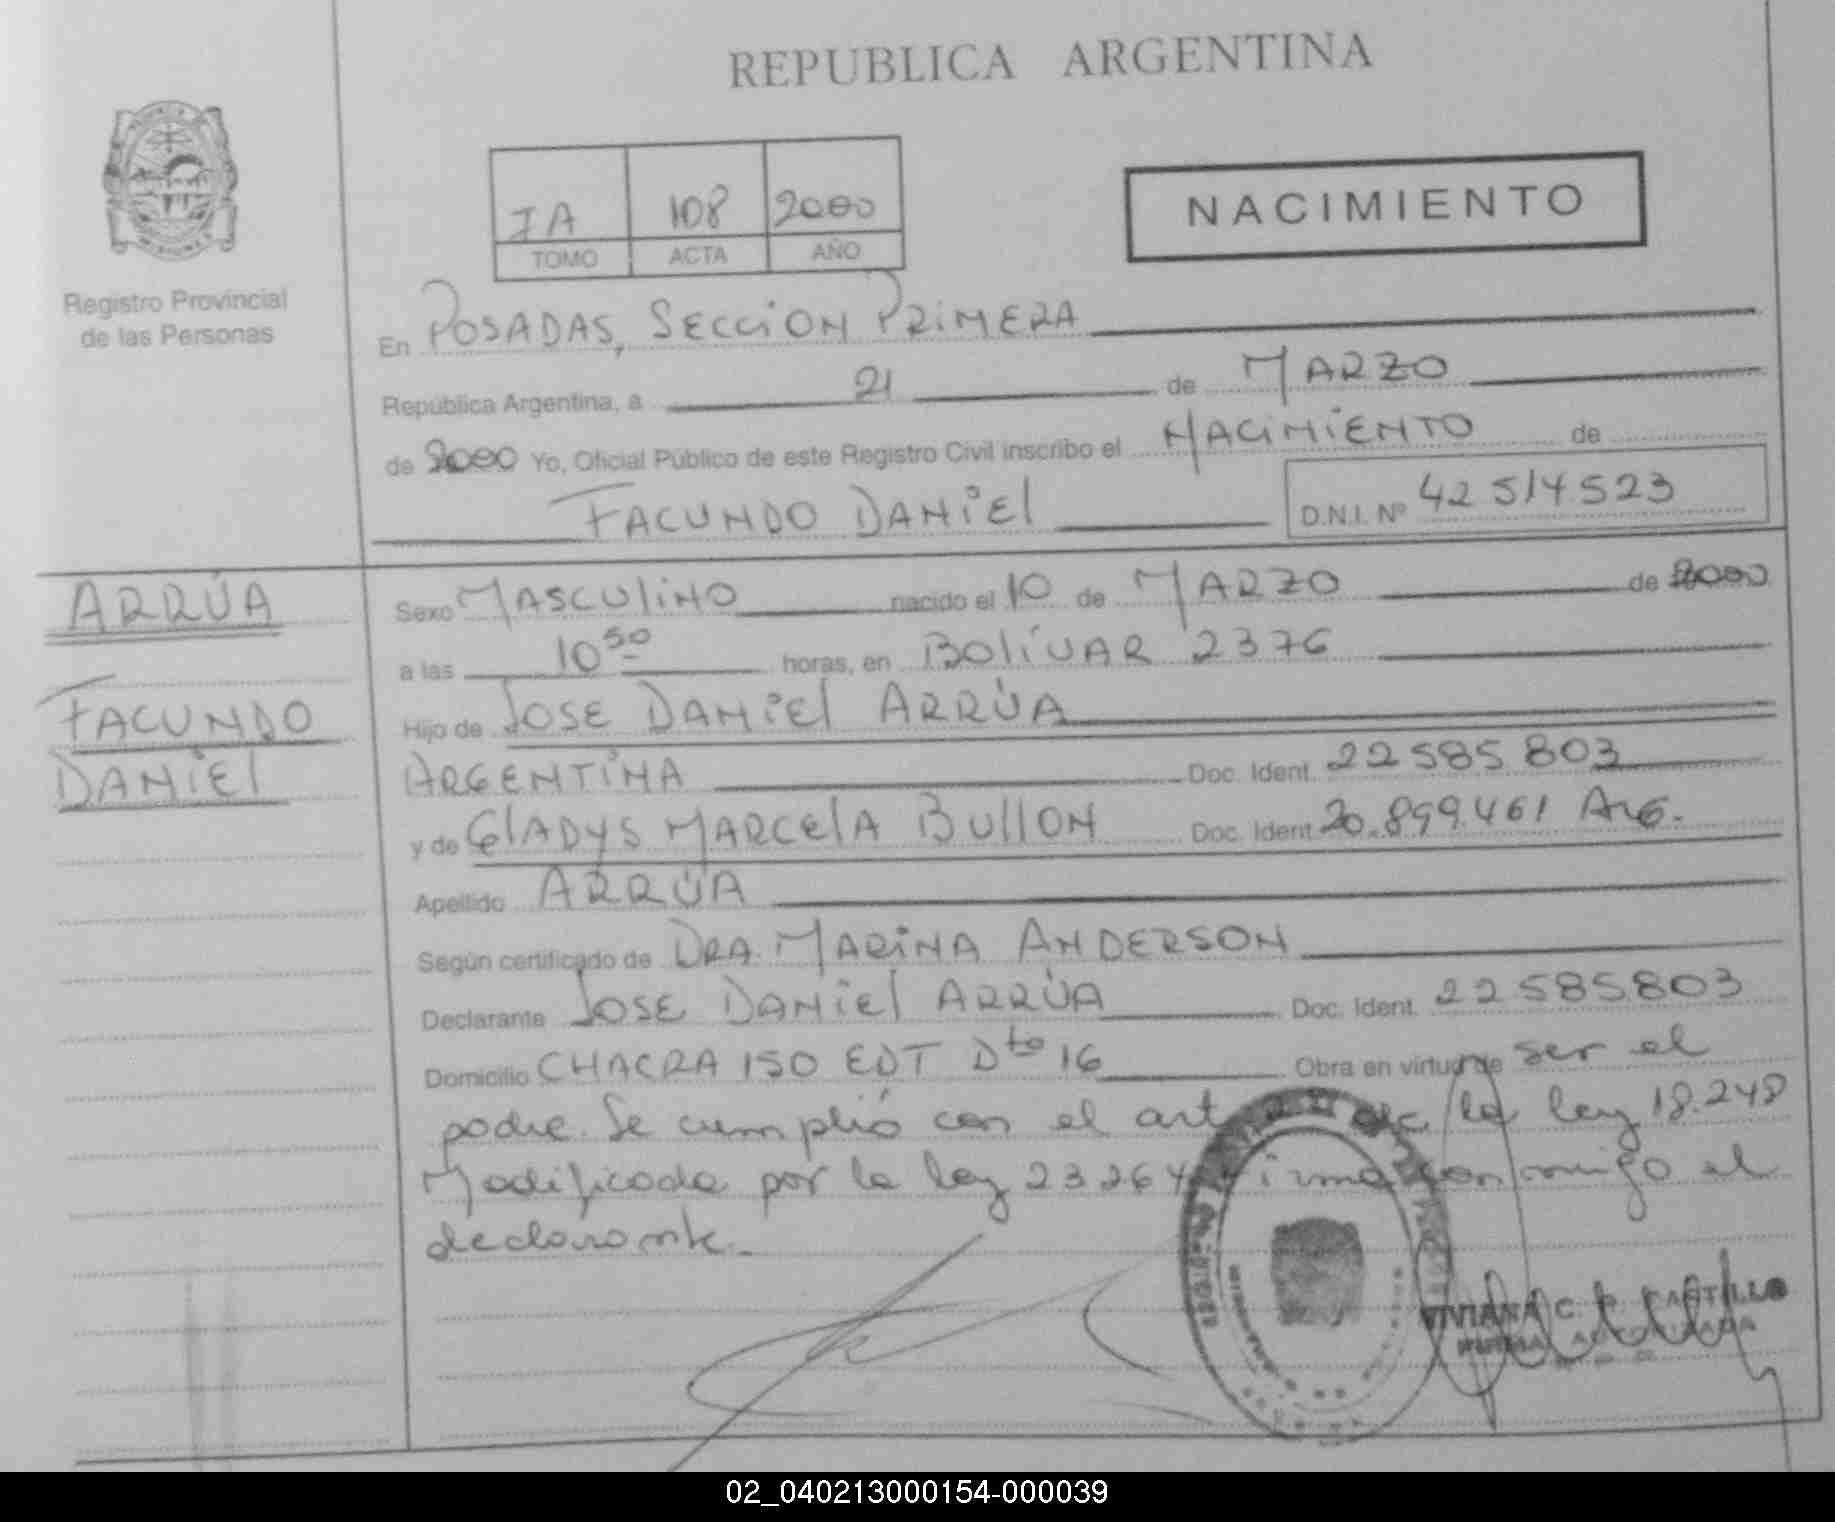 REPUBLICA ARGENTINA
Registro Provincial
de las Personas
108 2000
TOMO ACTA AÑO
NACIMIENTO
En POSADAS, SECCION PRIMERA
República Argentina, a 21 de MARZO
de 2000 Yo, Oficial Público de este Registro Civil inscribo el NACIMIENTO de
FACUNDO DANIEL D.N.I. Nº 42 514.523
ARRÚA
FACUNDO
DANIEL
Sexo MASCULINO nacido el 10 de MARZO de 2000
a las 10 50 horas, en BOLÍVAR 2376
Hijo de JOSE DANIEL ARRÚA
ARGENTINA Doc. Ident. 22 585 803
y de GLADYS MARCELA BULLON Doc. Ident. 20.899.461 ARG.
Apellido ARRÚA
Según certificado de DRA. MARINA ANDERSON
Declarante JOSE DANIEL ARRÚA Doc. Ident. 22 585803
Domicilio CHACRA 150 EDT Dto 16 Obra en virtud de ser el
padre. Se cumplió con el art de la ley 18.248
Modificada por la ley 23264 firma conmigo el
declarante.
VIVIANA C. CASTILLO
02_040213000154-000039